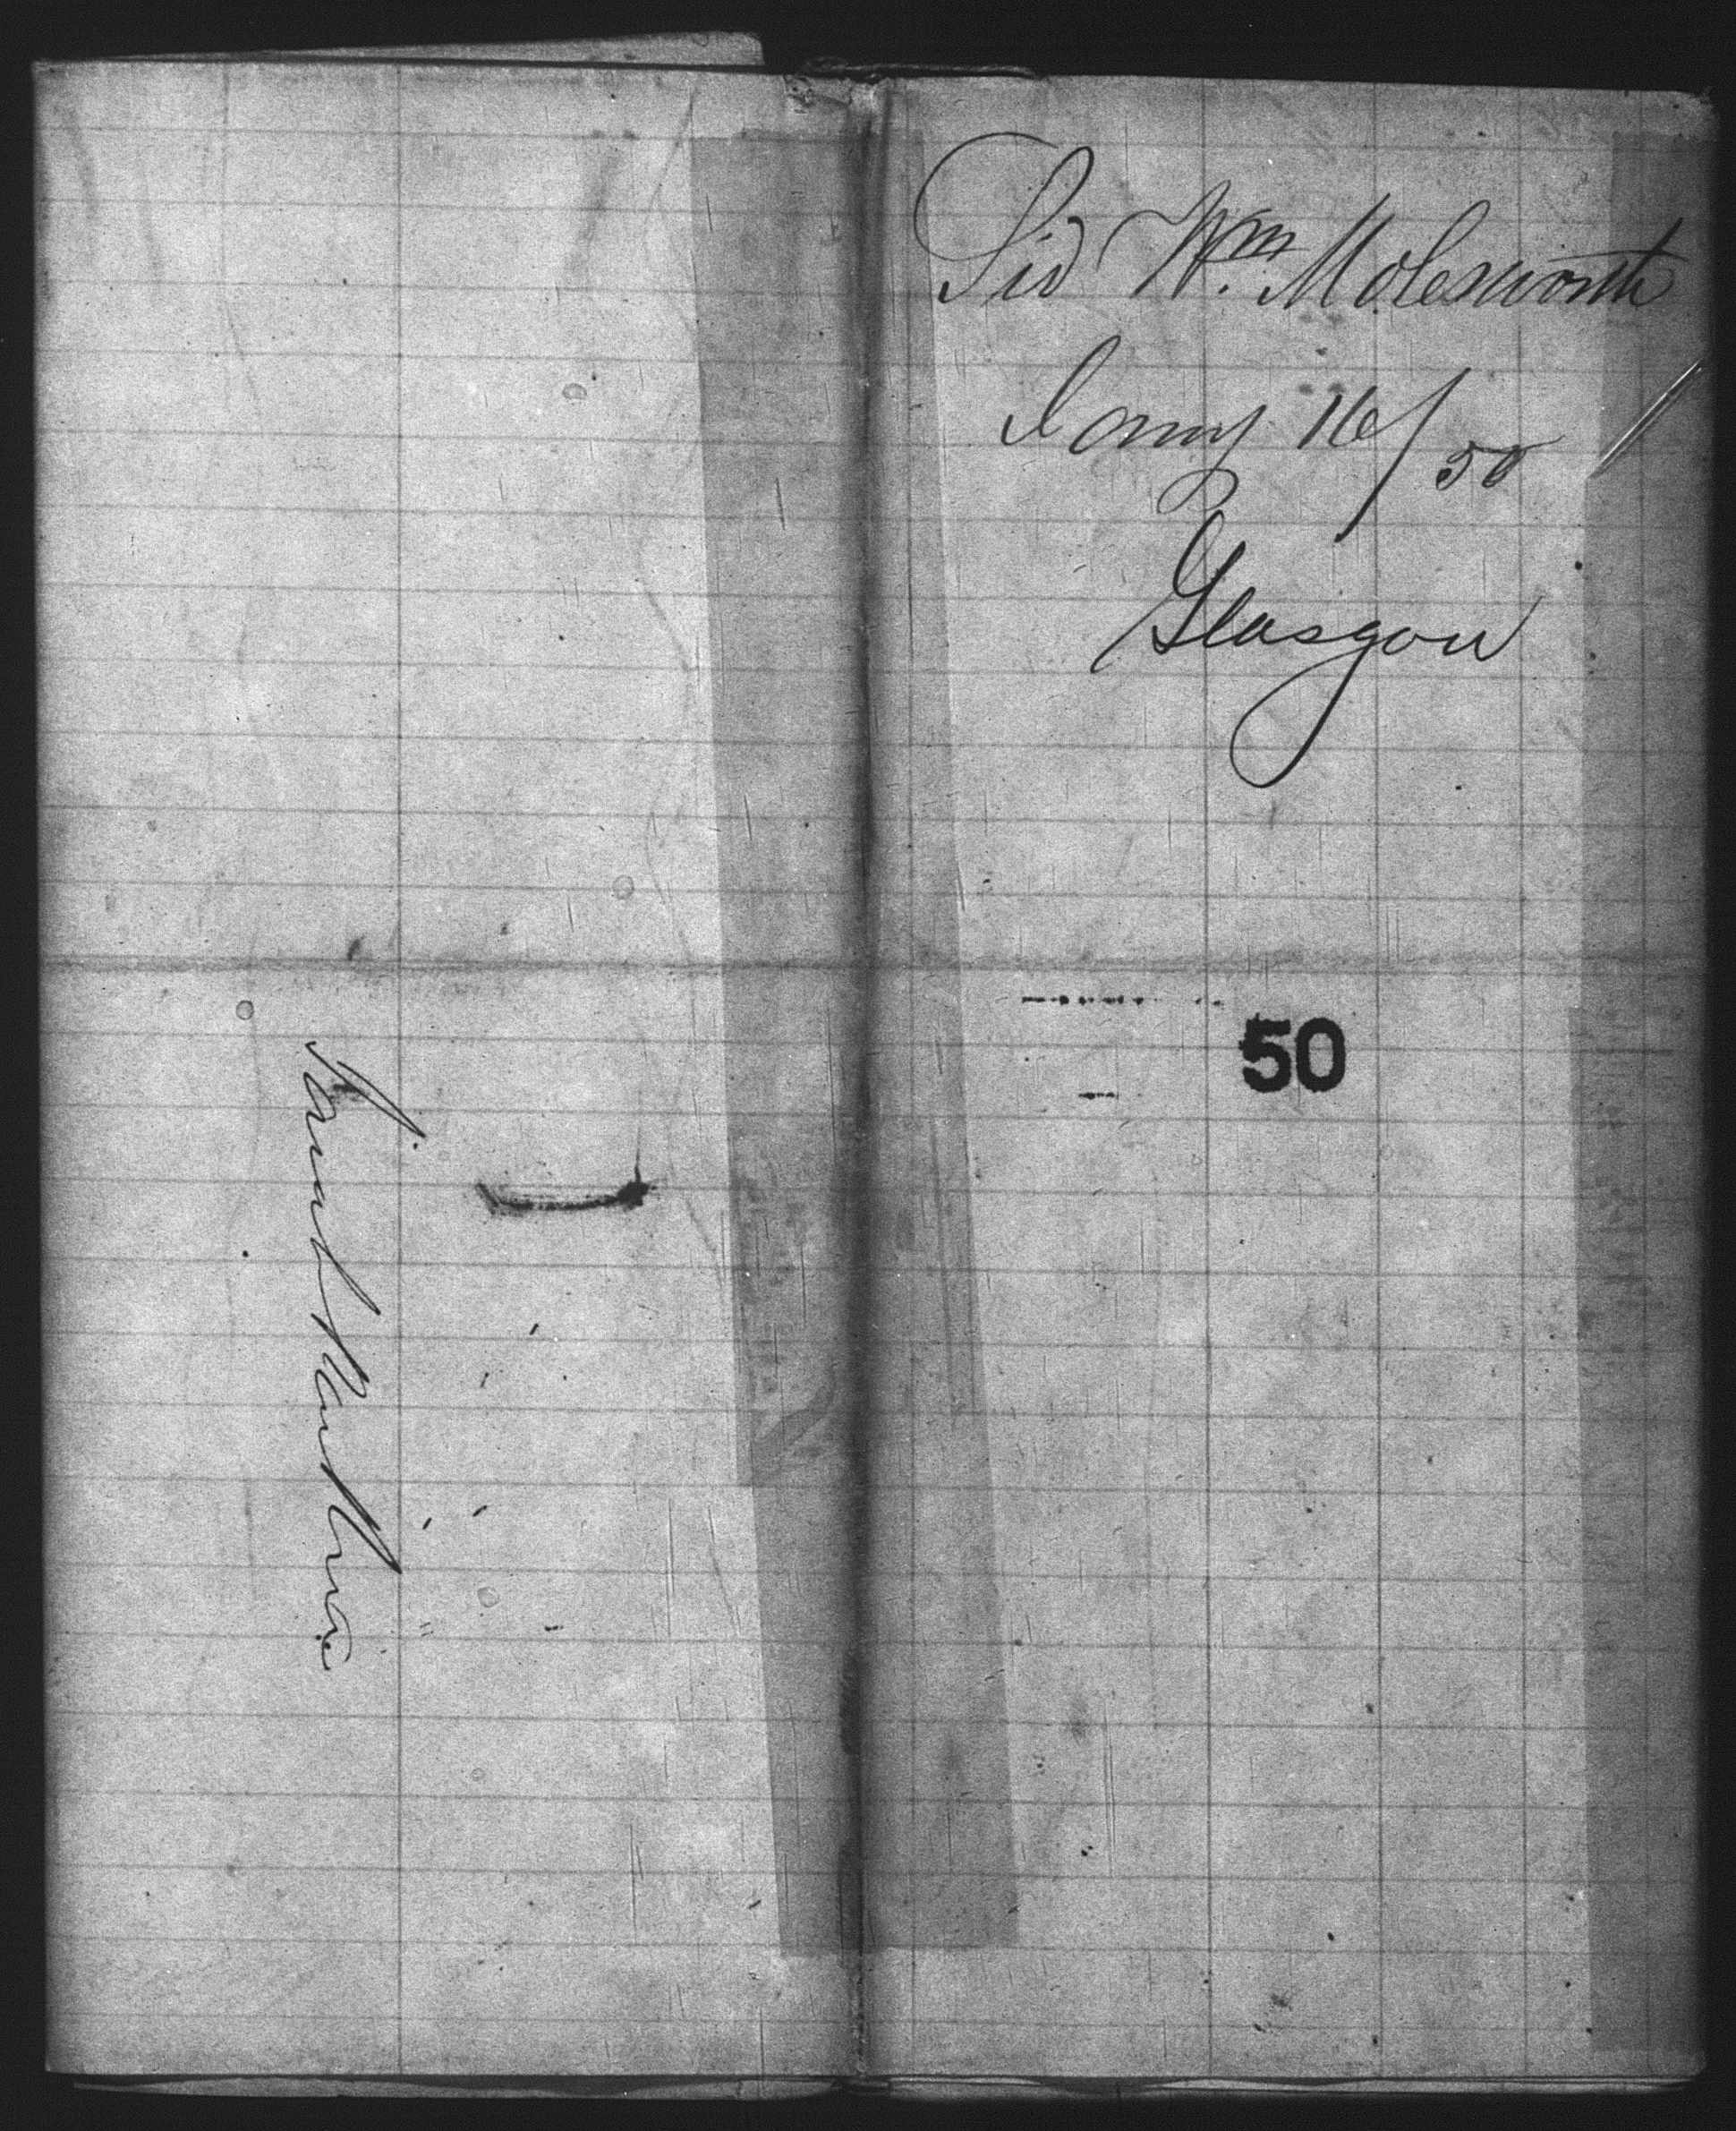 Sir Wm. Molesworth
Jany 16/50
Glasgow
50